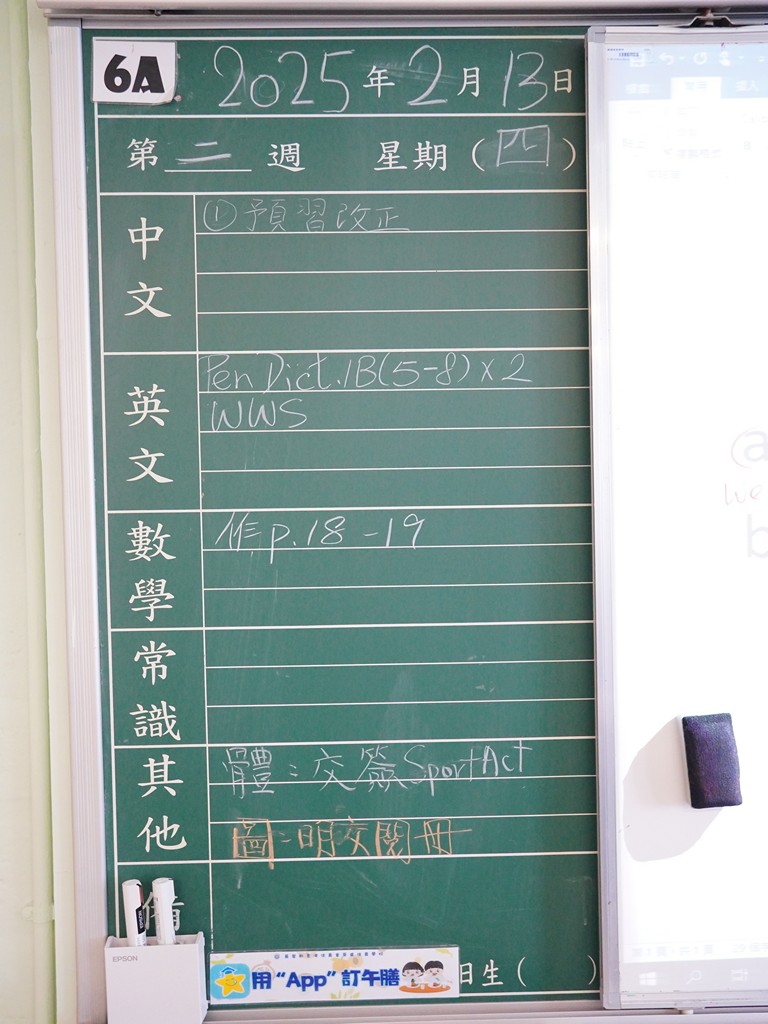 6A
2025年2月13日
第二週 星期(四)
中文
①預習改正
英文
Pen Dict. 1B(5-8)x2
WWS
數學
作p.18-19
常識
其他
體：交簽SportAct
圖-明交閱冊
備
EPSON
用“App”訂午膳
日生( )